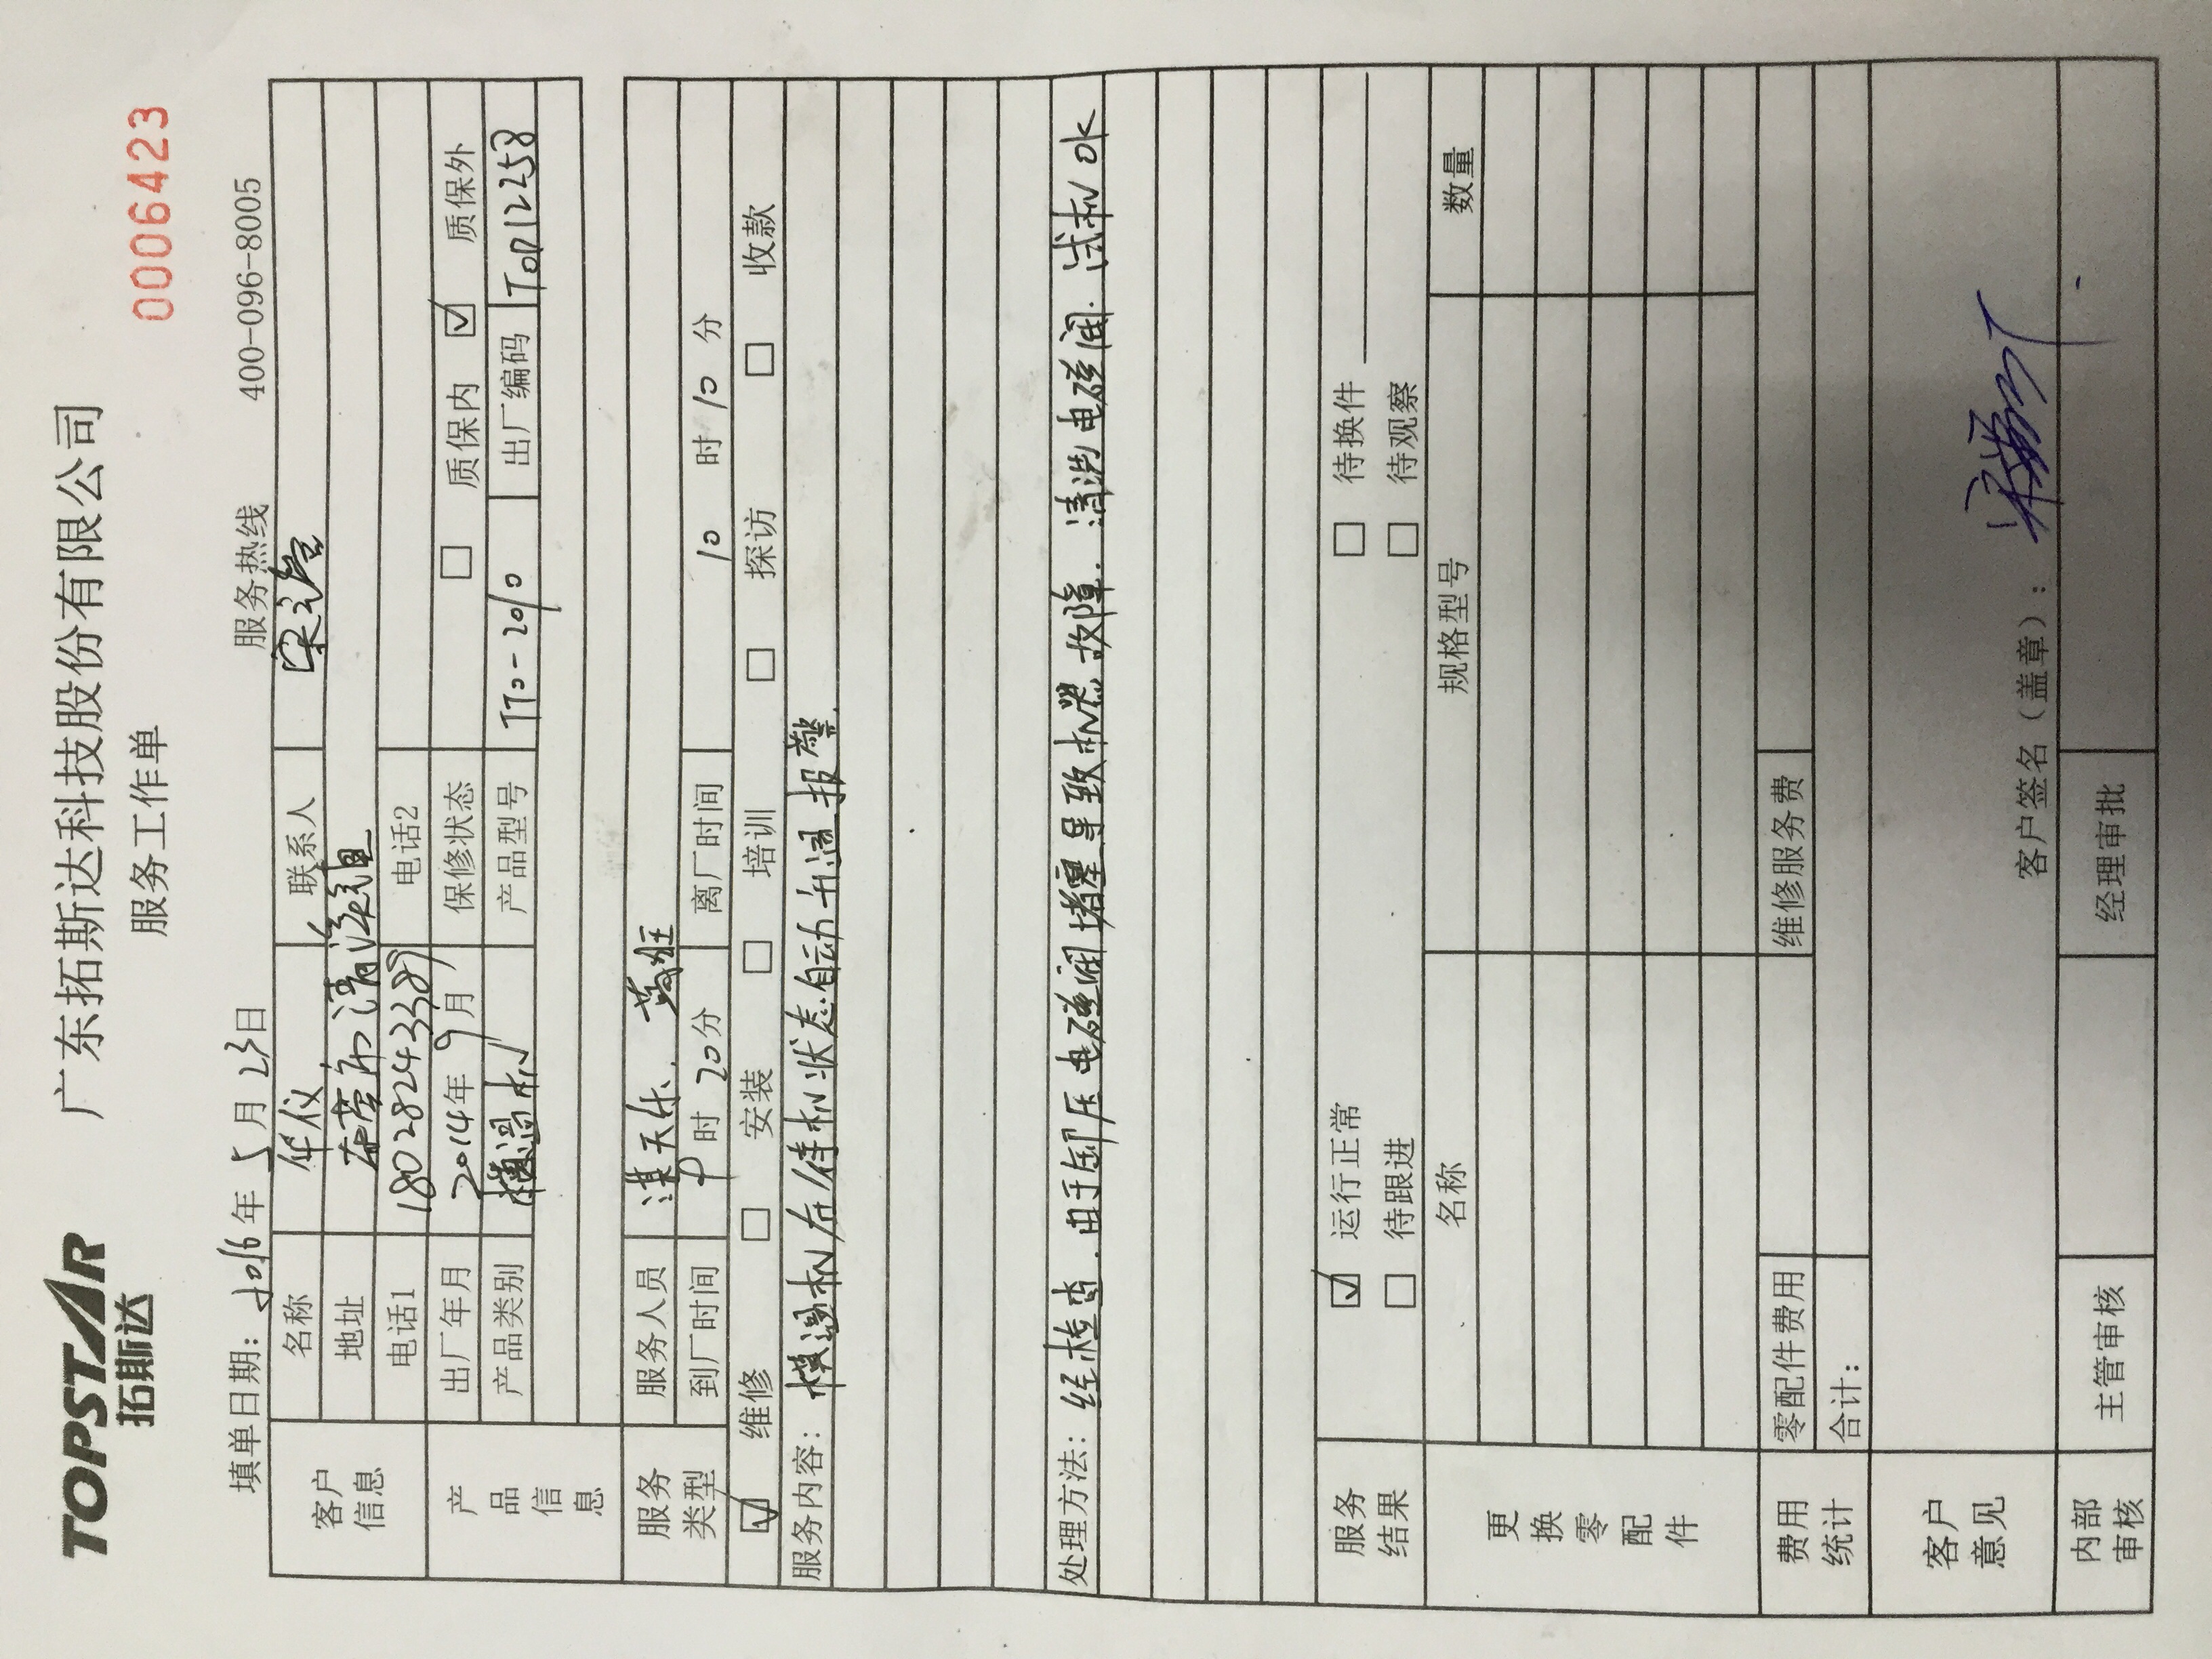 TOPSTAR
拓斯达
广东拓斯达科技股份有限公司
服务工作单
0006423
填单日期: 2016年5月23日 服务热线 400-096-8005
客户信息
名称 华仪 联系人 梁
地址 东莞市清溪
电话1 18028243389 电话2
产品信息
出厂年月 2014年9月 保修状态 □ 质保内 ☑ 质保外
产品类别 模温机 产品型号 TTO-2010 出厂编码 TOP12258
服务类型
服务人员 天乐.
到厂时间 时20分 离厂时间 10时10分
☑ 维修 □ 安装 □ 培训 □ 探访 □ 收款
服务内容: 模温机在待机状态自动升温报警.
处理方法: 经检查.由于卸压电磁阀堵塞导致机器故障.清洗电磁阀.试机OK
服务结果
☑ 运行正常 □ 待换件
□ 待跟进 □ 待观察
更换零配件
名称 规格型号 数量
费用统计
零配件费用 维修服务费
合计:
客户意见
客户签名(盖章):
内部审核
主管审核 经理审批